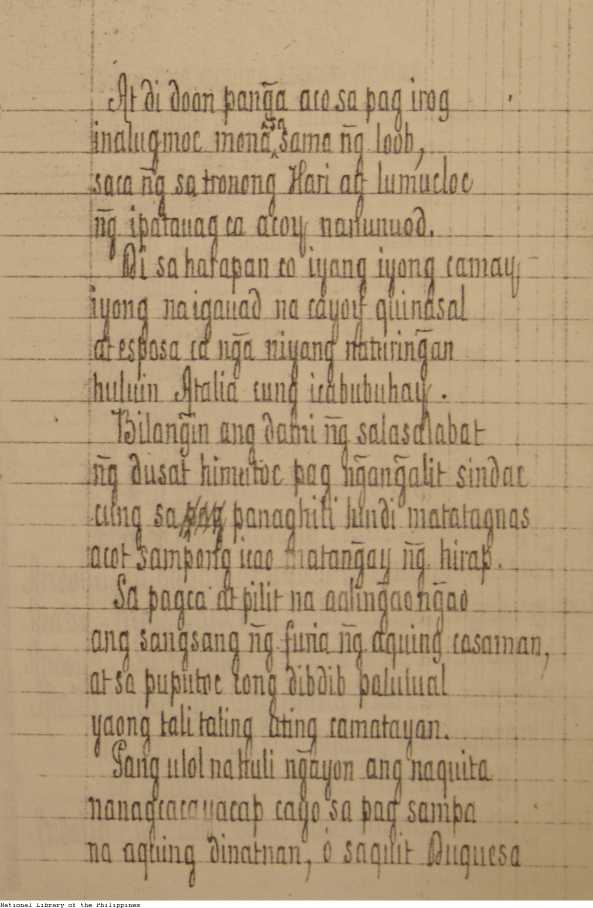 At di doon pang̃a aco sa pag irog
inalugmoc mona sa sama ng̃ loob,
saca ng̃ sa tronong Hari at lumucloc
ng̃ ipatauag ca acoy nanunuod.
Di sa harapan co iyang iyong camay
iyong naigauad na cayoy quinasal
at esposa ca ng̃a niyang naturing̃an
huluin Atalia cung icabubuhay.
Bilang̃in ang dami ng̃ salasalabat
ng̃ dusat himutoc pag ng̃ang̃alit sindac
cung sa panaghili hindi matatagnas
acot sampong icao matang̃ay ng̃ hirap.
Sa pagca at pilit na aaling̃aong̃ao
ang sangsang ng̃ furia ng̃ aquing casaman,
at sa puputoc tong dibdib palulual
yaong tali taling ating camatayan.
Sang ulol na huli ng̃ayon ang naquita
nanagcacayacap cayo sa pag sampa
na aquing dinatnan, ó saquit Duquesa
National Library of the Philippines